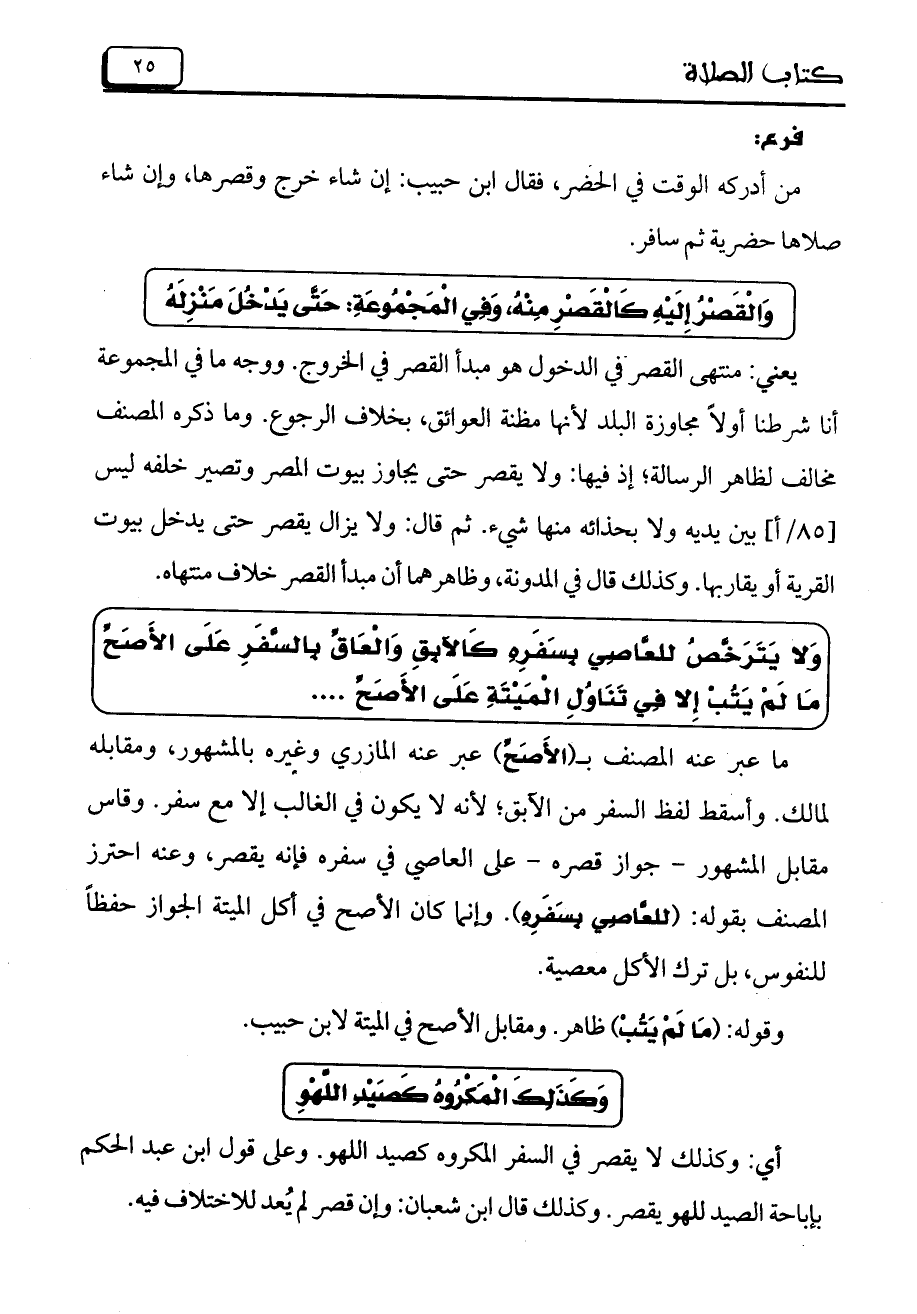 كتاب الصلاة
٢٥
فرع:
من أدركه الوقت في الحضر، فقال ابن حبيب: إن شاء خرج وقصرها، وإن شاء
صلاها حضرية ثم سافر.
وَالْقَصْرُ إِلَيْهِ كَالْقَصْرِ مِنْهُ، وَفِي الْمَجْمُوعَةِ: حَتَّى يَدْخُلَ مَنْزِلَهُ
يعني: منتهى القصر في الدخول هو مبدأ القصر في الخروج. ووجه ما في المجموعة
أنا شرطنا أولاً مجاوزة البلد لأنها مظنة العوائق، بخلاف الرجوع. وما ذكره المصنف
مخالف لظاهر الرسالة؛ إذ فيها: ولا يقصر حتى يجاوز بيوت المصر وتصير خلفه ليس
[٨٥/ أ] بين يديه ولا بحذائه منها شيء. ثم قال: ولا يزال يقصر حتى يدخل بيوت
القرية أو يقاربها. وكذلك قال في المدونة، وظاهرهما أن مبدأ القصر خلاف منتهاه.
وَلا يَتَرَخَّصُ للعَّاصِي بِسَفَرِهِ كَالآبِقِ وَالْعَاقِّ بِالسَّفَرِ عَلَى الأَصَحِّ
مَا لَمْ يَتُبْ إِلا فِي تَنَاوُلِ الْمَيْتَةِ عَلَى الأَصَحِّ ....
ما عبر عنه المصنف بـ(الأَصَحِّ) عبر عنه المازري وغيره بالمشهور، ومقابله
لمالك. وأسقط لفظ السفر من الآبق؛ لأنه لا يكون في الغالب إلا مع سفر. وقاس
مقابل المشهور - جواز قصره - على العاصي في سفره فإنه يقصر، وعنه احترز
المصنف بقوله: (للعَّاصِي بِسَفَرِهِ). وإنما كان الأصح في أكل الميتة الجواز حفظاً
للنفوس، بل ترك الأكل معصية.
وقوله: (مَا لَمْ يَتُبْ) ظاهر. ومقابل الأصح في الميتة لابن حبيب.
وَكَذَلِكَ الْمَكْرُوهُ كَصَيْدِ اللَّهْوِ
أي: وكذلك لا يقصر في السفر المكروه كصيد اللهو. وعلى قول ابن عبد الحكم
بإباحة الصيد للهو يقصر. وكذلك قال ابن شعبان: وإن قصر لم يُعد للاختلاف فيه.